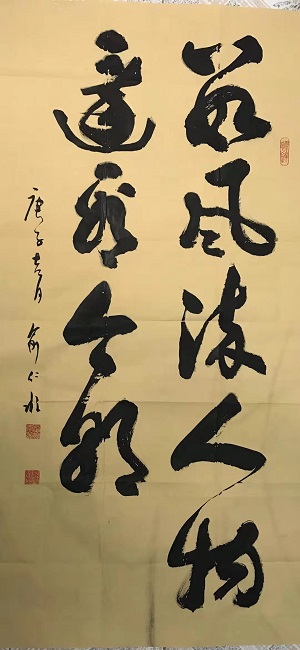 數風流人物
還看今朝
庚子 月 俞仁